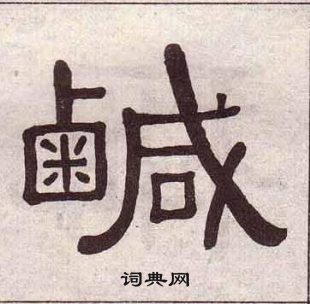 鹹
词典网